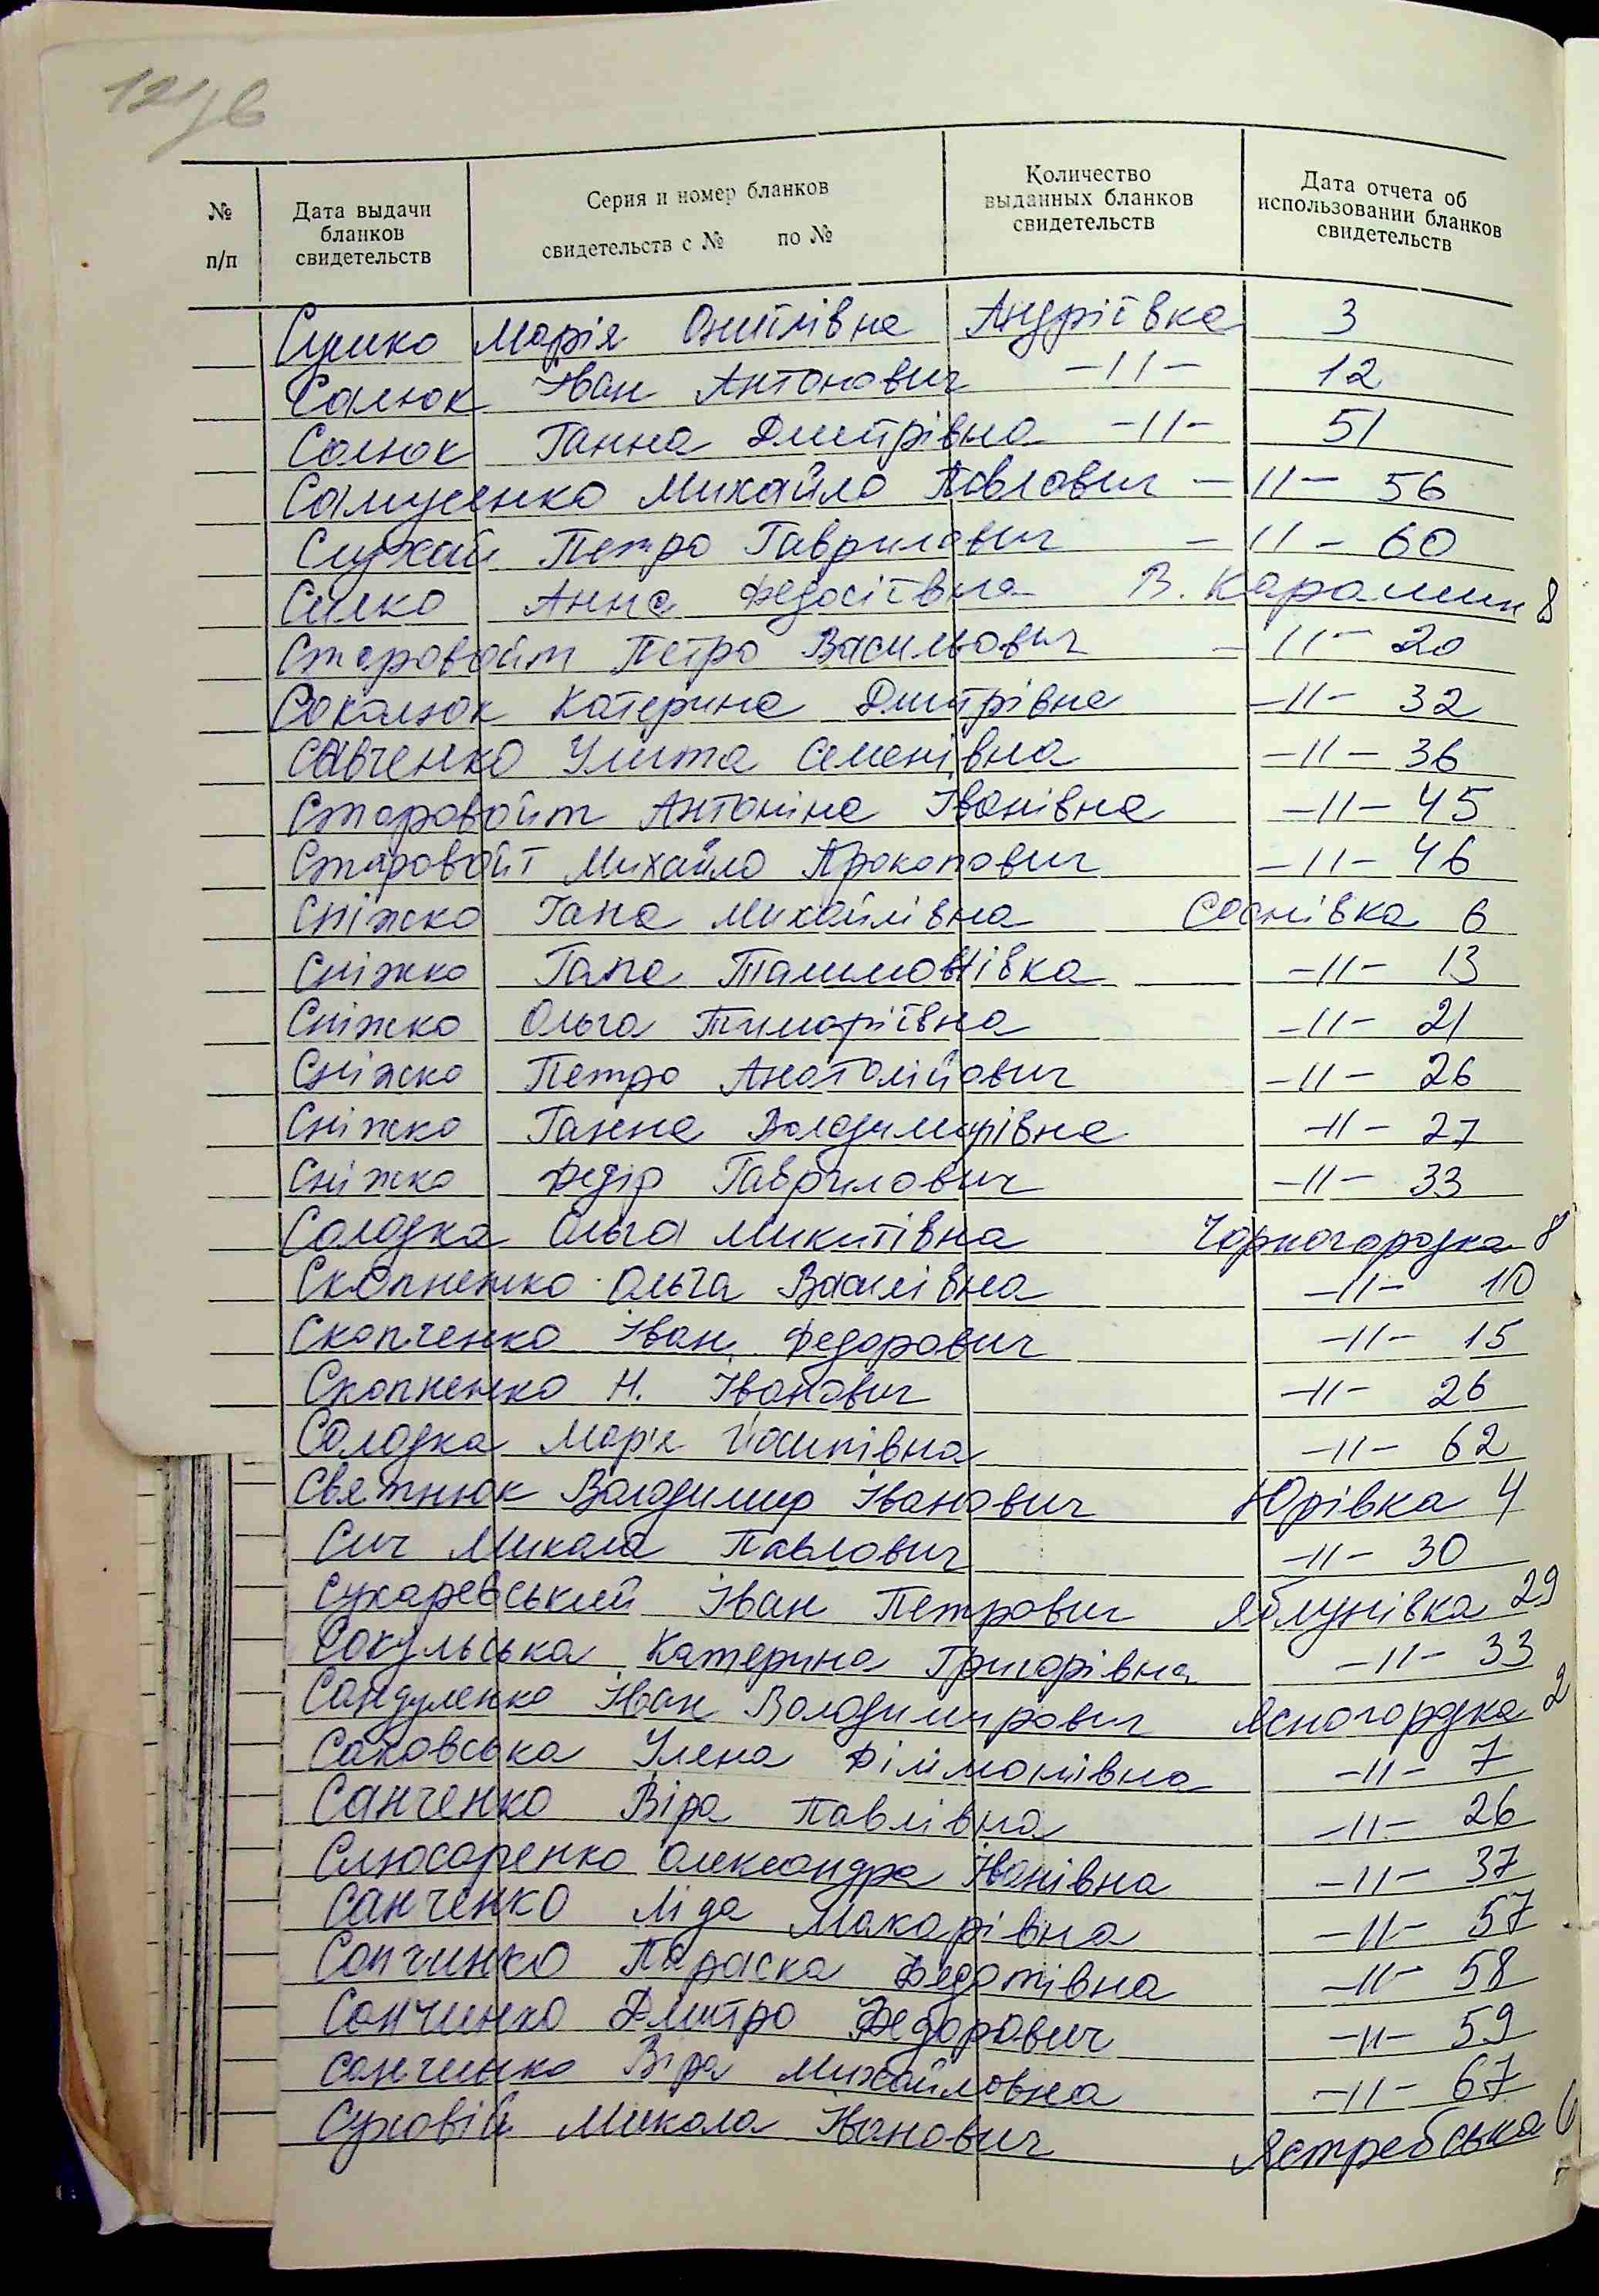 № п/п
Дата выдачи бланков свидетельств
Серия и номер бланков свидетельств с № по №
Количество выданных бланков свидетельств
Дата отчета об использовании бланков свидетельств
Сушко Марія Охтпівна Андріївка 3
Салюк Іван Антонович -11- 12
Салюк Ганна Дмитрівна -11- 51
Самусенко Михайло Павлович -11- 56
Слухай Петро Гаврилович -11- 60
Силко Анна Федосіївна В. Карашин 8
Старовойт Петро Васильович -11- 20
Соколюк Катерина Дмитрівна -11- 32
Савченко Улита Семенівна -11- 36
Старовойт Антоніна Іванівна -11- 45
Старовойт Михайло Прокопович -11- 46
Сніжко Гана Михайлівна Соснівка 6
Сніжко Гапа -11- 13
Сніжко Ольга Тимофіївна -11- 21
Сніжко Петро Анатолійович -11- 26
Сніжко Ганна Володимирівна -11- 27
Сніжко Федір Гаврилович -11- 33
Солодка Ольга Микитівна Чорногородка 8
Скопненко Ольга Василівна -11- 10
Скопченко Іван Федорович -11- 15
Скопненко Н. Іванович -11- 26
Солодка Мар'я Йосипівна -11- 62
Святнюк Володимир Іванович Юрівка 4
Сич Микола Павлович -11- 30
Сухаревський Іван Петрович Яблунівка 29
Сокульська Катерина Григорівна -11- 33
Сандуленко Іван Володимирович Ясногородка 2
Саковська Улена Філімонівна -11- 7
Санченко Віра Павлівна -11- 26
Слюсаренко Олександра Іванівна -11- 37
Санченко Ліда Макарівна -11- 57
Санчинко Параска Федотівна -11- 58
Санчинко Дмитро Федорович -11- 59
Санчинко Віра Михайловна -11- 67
Суховій Микола Іванович Ястребська 6